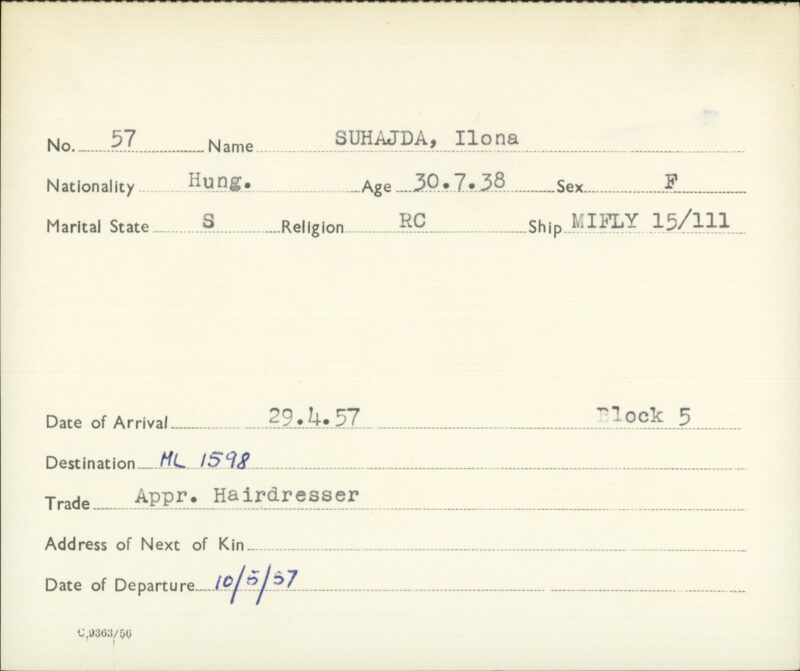 No. 57 Name SUHAJDA, Ilona
Nationality Hung. Age 30.7.38 Sex F
Marital State S Religion RC Ship MIFLY 15/111
Date of Arrival 29.4.57 Block 5
Destination ML 1598
Trade Appr. Hairdresser
Address of Next of Kin
Date of Departure 10/5/57
C.9363/56